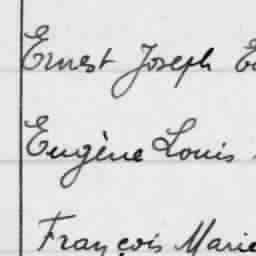 Ernest Joseph
Eugène Louis
François Marie